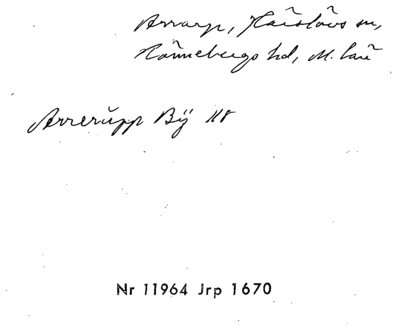 Arrarp, Kärslövs sn,
Rönnebergs hd, M. län
Arrerupp Bÿ
Nr 11964 Jrp 1670